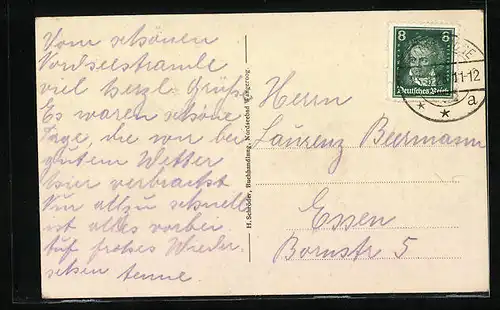 Vom schönen
Nordseestrande
viel herzl. Grüße
Es waren schöne
Tage, die wir bei
gutem Wetter
hier verbracht
Nur allzu schnell
ist alles vorbei
Auf frohes Wieder
sehen
H. Schröder, Buchhandlung, Nordseebad Wangeroog.
Herrn
Laurenz Beermann
Essen
Bornstr 5
8 8
Deutsches Reich
11-12
* * a